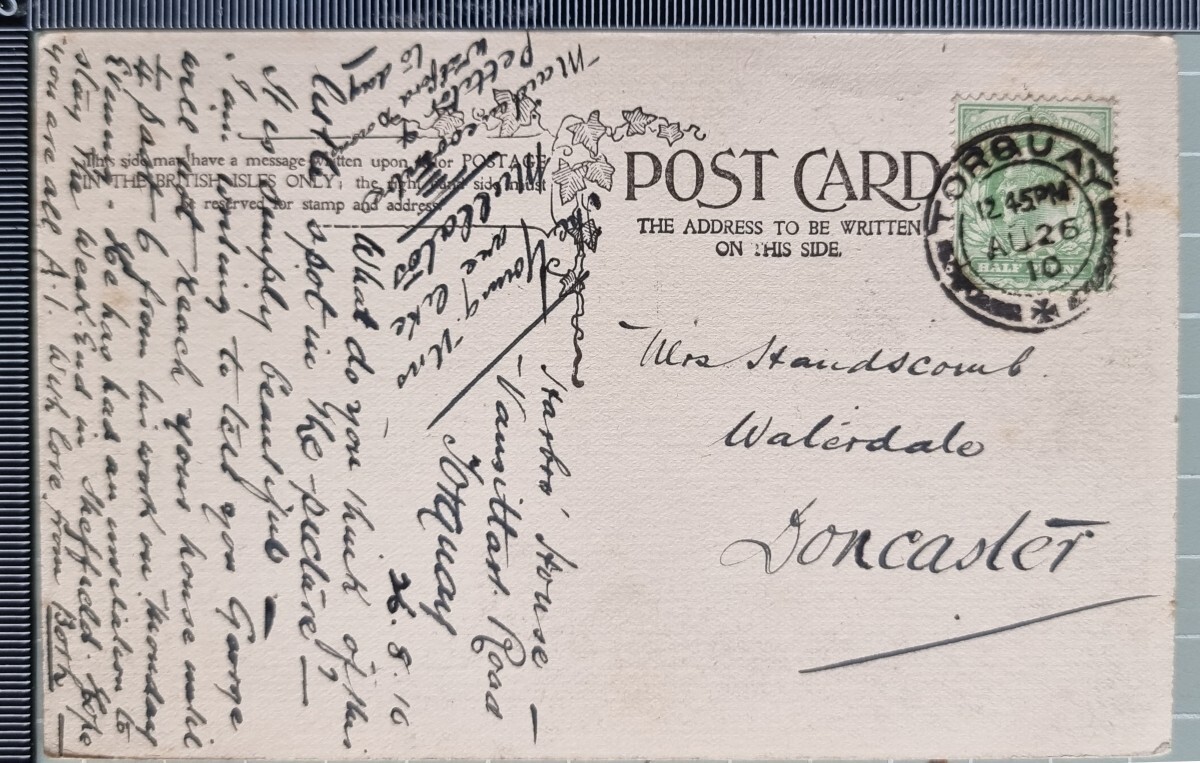 POST CARD
THE ADDRESS TO BE WRITTEN
ON THIS SIDE.
This side may have a message written upon it for POSTAGE
IN THE BRITISH ISLES ONLY; the right hand side must
be reserved for stamp and address.
TORQUAY
12 45PM
AU 26
10
HALF PENNY
Mrs Handscomb.
Waterdale
Doncaster
Harbro' House –
Vansittart Road
Torquay
26.8.10
What do you think of this
little spot in the picture? –
It is simply beautiful –
I am writing to tell you George
will not reach your house until
1/4 past 6 from his work on Monday
Evening. He has had an invitation to
stay the Week End in Sheffield. Hope
you are all A.1. With love from Both –
to day
Young Uns
are like